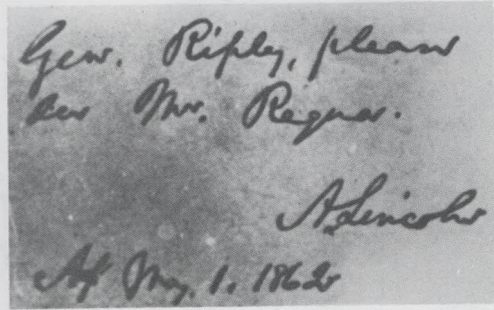 Gen. Ripley, please
see Mr. Ragnar.
A. Lincoln
May, 1. 1862